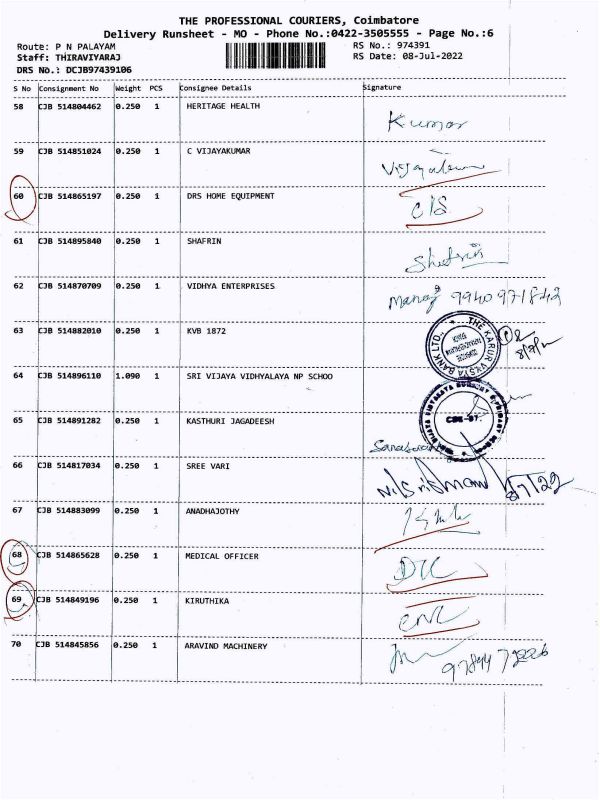 THE PROFESSIONAL COURIERS, Coimbatore
Delivery Runsheet - MO - Phone No.:0422-3505555 - Page No.:6
Route: P N PALAYAM RS No.: 974391
Staff: THIRAVIYARAJ RS Date: 08-Jul-2022
DRS No.: DCJB97439106
S No Consignment No Weight PCS Consignee Details Signature
58 CJB 514804462 0.250 1 HERITAGE HEALTH Kumar
59 CJB 514851024 0.250 1 C VIJAYAKUMAR
60 CJB 514865197 0.250 1 DRS HOME EQUIPMENT C/S
61 CJB 514895840 0.250 1 SHAFRIN Shafrin
62 CJB 514870709 0.250 1 VIDHYA ENTERPRISES Manoj 9940971842
63 CJB 514882010 0.250 1 KVB 1872
THE KARUR VYSYA BANK LTD.
64 CJB 514896110 1.090 1 SRI VIJAYA VIDHYALAYA NP SCHOO
65 CJB 514891282 0.250 1 KASTHURI JAGADEESH
66 CJB 514817034 0.250 1 SREE VARI 8/7/22
67 CJB 514883099 0.250 1 ANADHAJOTHY
68 CJB 514865628 0.250 1 MEDICAL OFFICER
69 CJB 514849196 0.250 1 KIRUTHIKA
70 CJB 514845856 0.250 1 ARAVIND MACHINERY